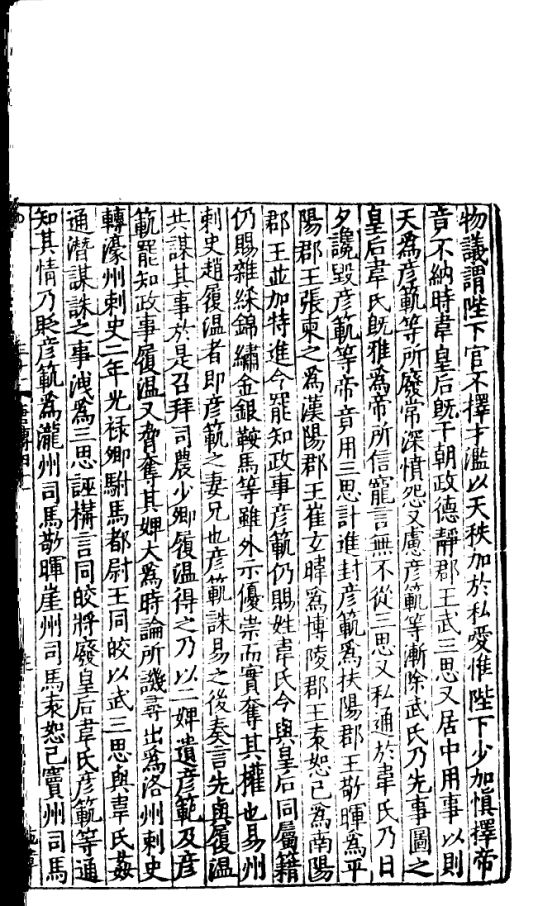 物議謂陛下官不擇才濫以天秩加於私愛惟陛下少加愼擇帝
竟不納時韋皇后旣干朝政德靜郡王武三思又居中用事以則
天爲彥範等所廢常深憤怨又慮彥範等漸除武氏乃先事圖之
皇后韋氏旣雅爲帝所信寵言無不從三思又私通於韋氏乃日
夕讒毀彥範等帝竟用三思計進封彥範爲扶陽郡王敬暉爲平
陽郡王張柬之爲漢陽郡王崔玄暐爲博陵郡王袁恕己爲南陽
郡王並加特進令罷知政事彥範仍賜姓韋氏令與皇后同屬籍
仍賜雜綵錦繡金銀鞍馬等雖外示優崇而實奪其權也易州
刺史趙履溫者即彥範之妻兄也彥範誅易之後奏言先與履溫
共謀其事於是召拜司農少卿履溫得之乃以二婢遺彥範及彥
範罷知政事履溫又脅奪其婢大爲時論所譏尋出爲洛州刺史
轉濠州刺史二年光祿卿駙馬都尉王同皎以武三思與韋氏姦
通潛謀誅之事洩爲三思誣構言同皎將廢皇后韋氏彥範等通
知其情乃貶彥範爲瀧州司馬敬暉崖州司馬袁恕己竇州司馬